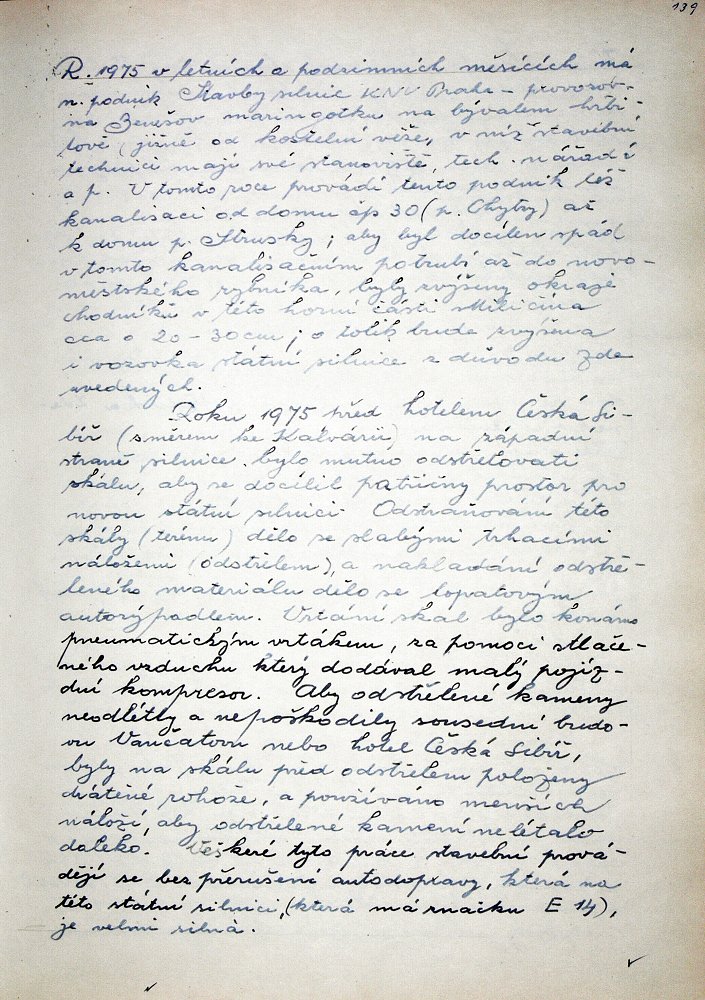 139
R. 1975 v letních a podzimních měsících má
n. podnik Stavby silnic KNV Praha - provozov-
na Benešov maringotku na bývalém hřbi-
tově (jižně od kostelní věže, v níž stavební
technici mají své stanoviště, tech. nářadí
a p. V tomto roce provádí tento podnik též
kanalisaci od domu čp 30 (p. Chyby) až
k domu p. Strusky; aby byl docílen spád
v tomto kanalisačním potrubí až do novo-
městského rybníka, byly zvýšeny okraje
chodníků v této horní části Miličína
cca o 20-30 cm; o tolik bude zvýšena
i vozovka státní silnice z důvodu zde
uvedených.
Roku 1975 před hotelem Česká Si-
bíř (směrem ke Kalvárii) na západní
straně silnice bylo nutno odstřelovati
skálu, aby se docílil patřičný prostor pro
novou státní silnici. Odstraňování této
skály (terénu) dělo se slabými trhacími
náložemi (odstřelem), a nakládání odstře-
leného materiálu dělo se lopatovým
autorýpadlem. Vrtání skal bylo konáno
pneumatickým vrtákem, za pomoci stlače-
ného vzduchu který dodával malý pojíz-
dní kompresor. Aby odstřelené kameny
neodlétly a nepoškodily sousední budo-
vu Vančatovu nebo hotel Česká Sibíř,
byly na skálu před odstřelem položeny
drátěné rohože, a používáno menších
náloží, aby odstřelené kamení nelétalo
daleko. Veškeré tyto práce stavební prová-
dějí se bez přerušení autodopravy, která na
této státní silnici, (která má značku E 14),
je velmi silná.